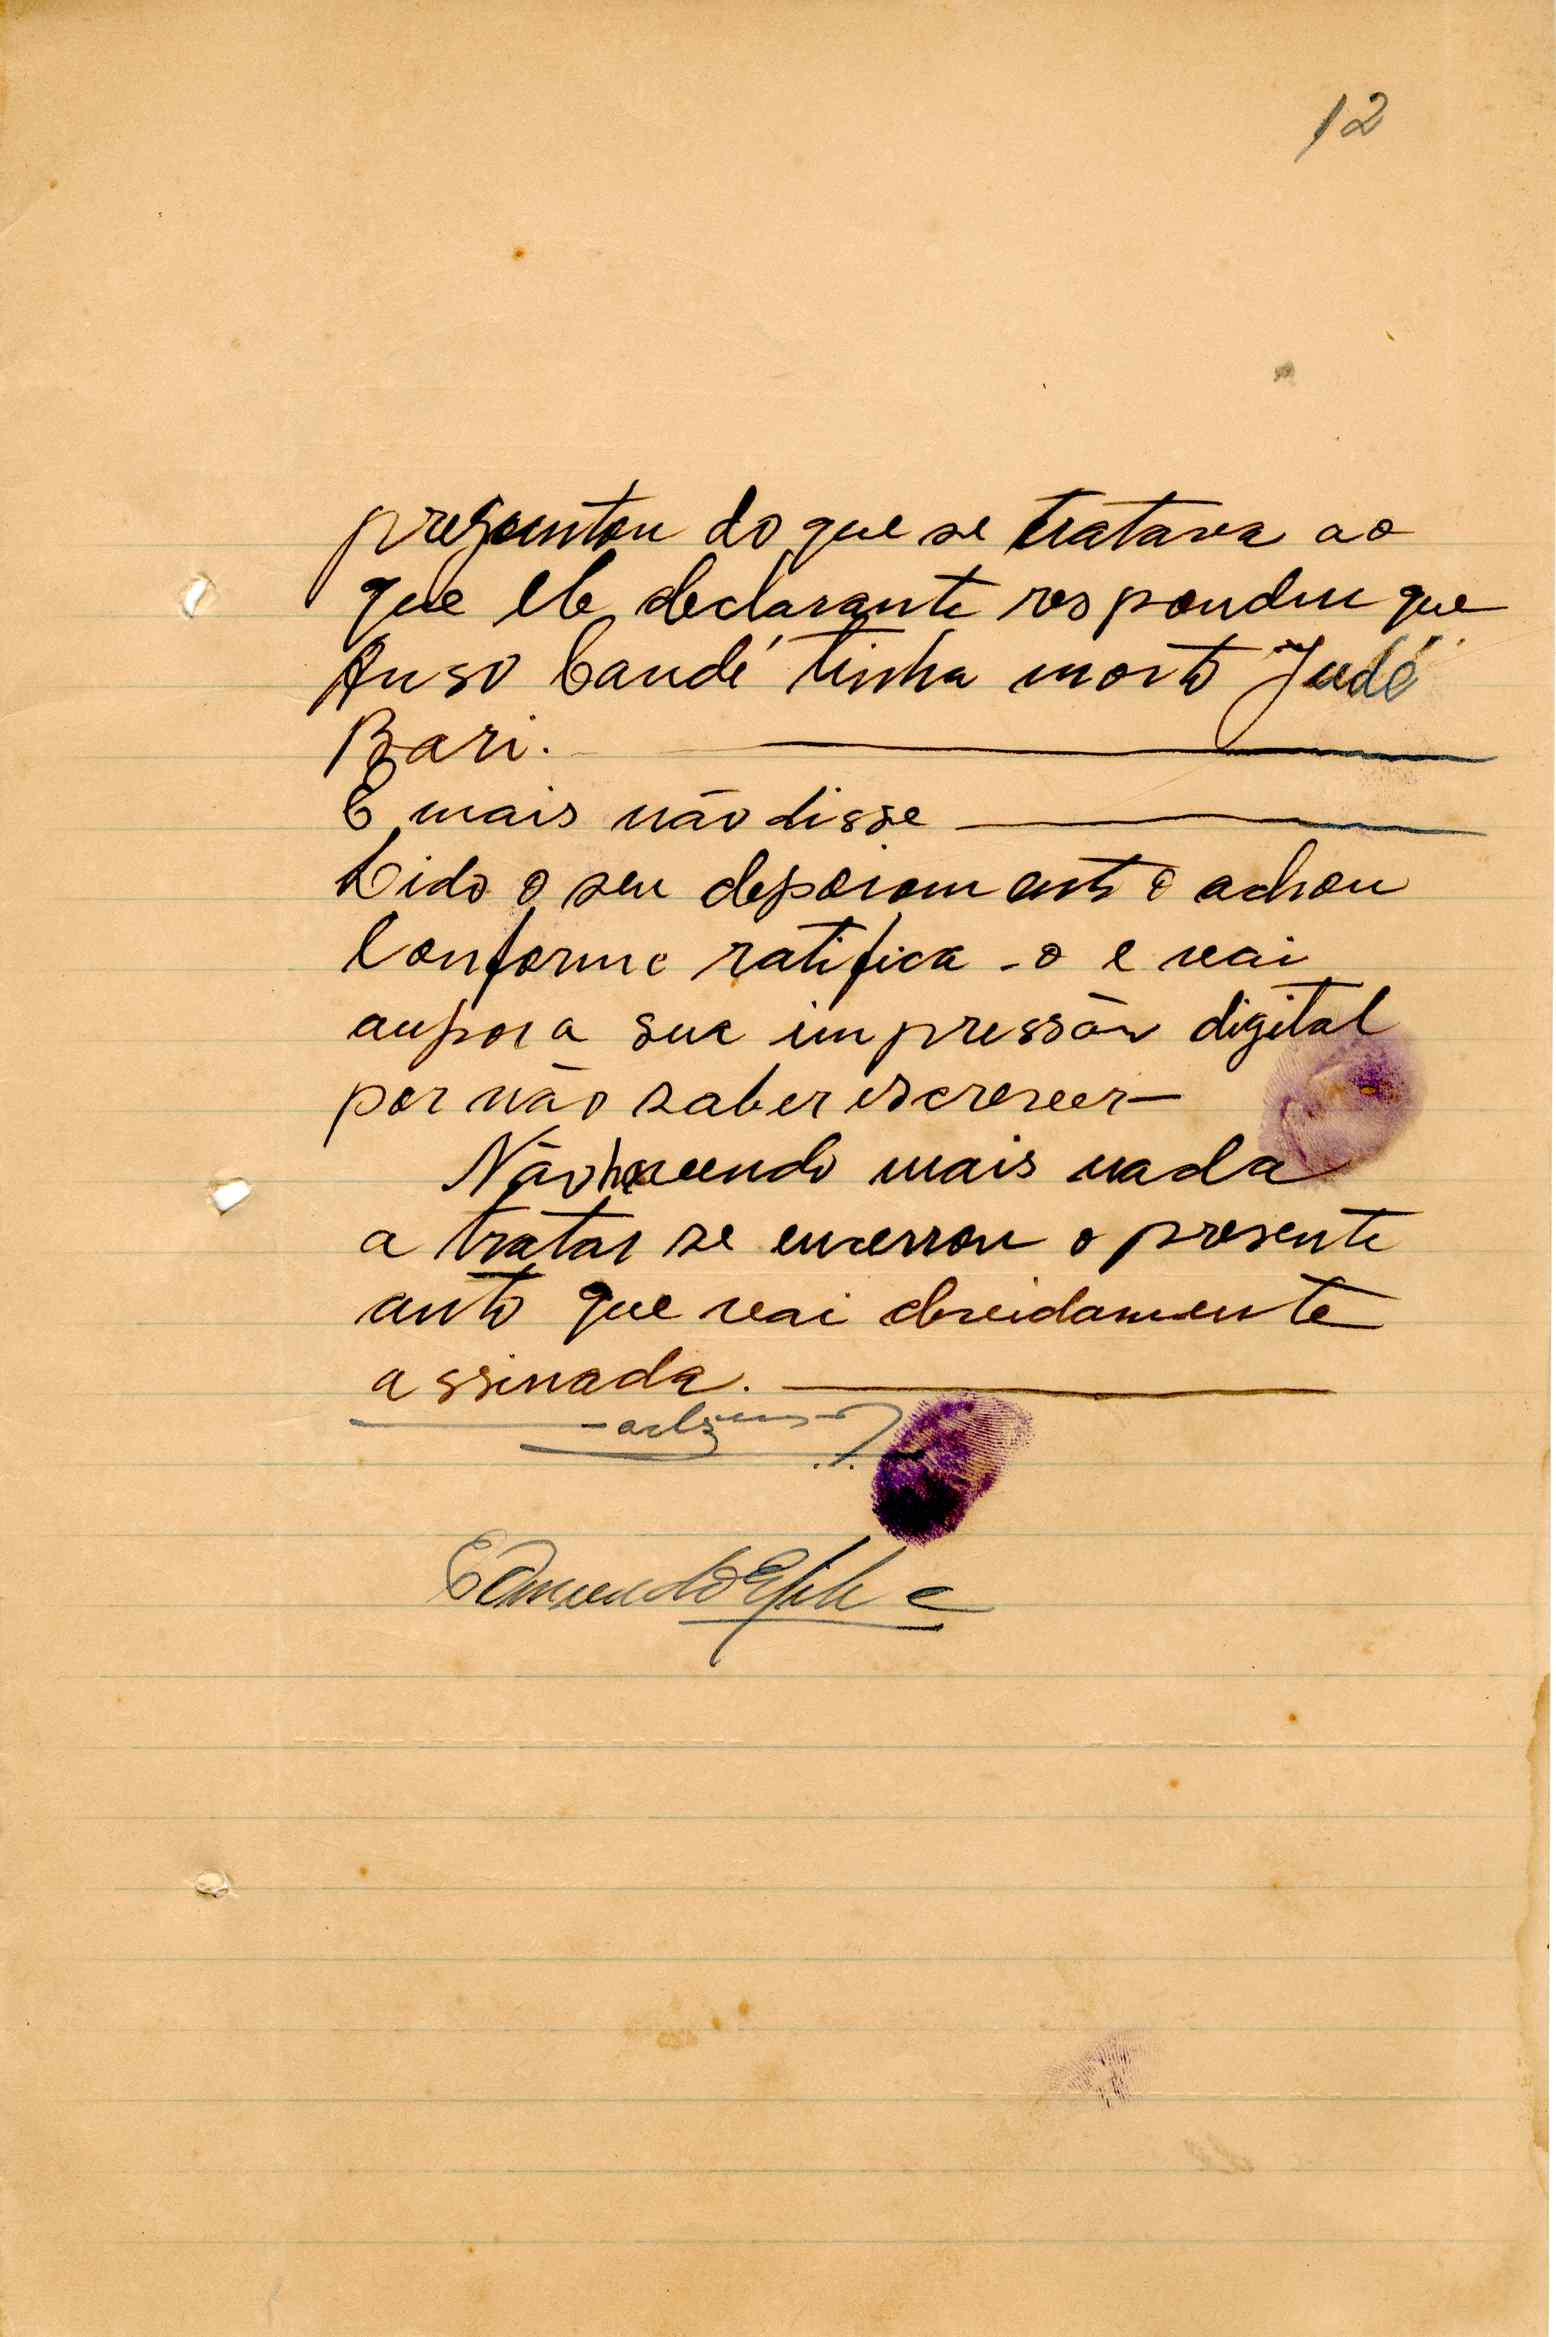 12
preguntou do que se tratava ao
que ele declarante respondeu que
Anso Candé tinha morto Judé
Bari.
E mais não disse
Lido o seu depoiamento o achou
conforme ratifica-o e vai
aupor a sua impressão digital
por não saber escrever
Não havendo mais nada
a tratar se encerrou o presente
auto que vai devidamente
assinada.
Edmundo